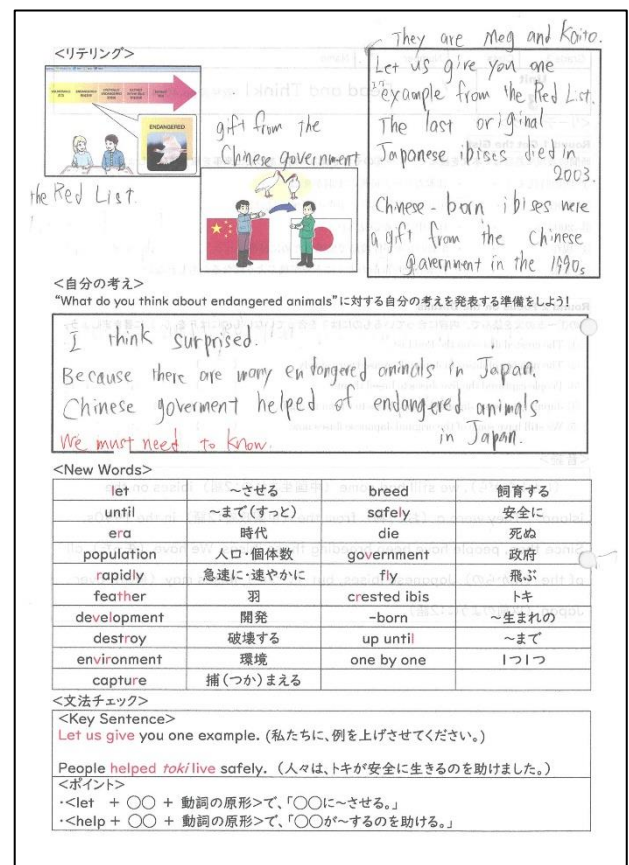 They are Meg and Kaito.
<リテリング>
ENDANGERED
gift from the
Chinese government
the Red List.
Let us give you one
example from the Red List.
The last original
Japanese ibises died in
2003.
Chinese-born ibises were
a gift from the Chinese
government in the 1990s
<自分の考え>
"What do you think about endangered animals"に対する自分の考えを発表する準備をしよう!
I think surprised.
Because there are many endangered animals in Japan.
Chinese goverment helped of endangered animals
in Japan.
We must need to know.
<New Words>
let ～させる breed 飼育する
until ～まで(ずっと) safely 安全に
era 時代 die 死ぬ
population 人口・個体数 government 政府
rapidly 急速に・速やかに fly 飛ぶ
feather 羽 crested ibis トキ
development 開発 -born ～生まれの
destroy 破壊する up until ～まで
environment 環境 one by one 1つ1つ
capture 捕(つか)まえる
<文法チェック>
<Key Sentence>
Let us give you one example. (私たちに、例を上げさせてください。)
People helped toki live safely. (人々は、トキが安全に生きるのを助けました。)
<ポイント>
・<let + ○○ + 動詞の原形>で、「○○に～させる。」
・<help + ○○ + 動詞の原形>で、「○○が～するのを助ける。」